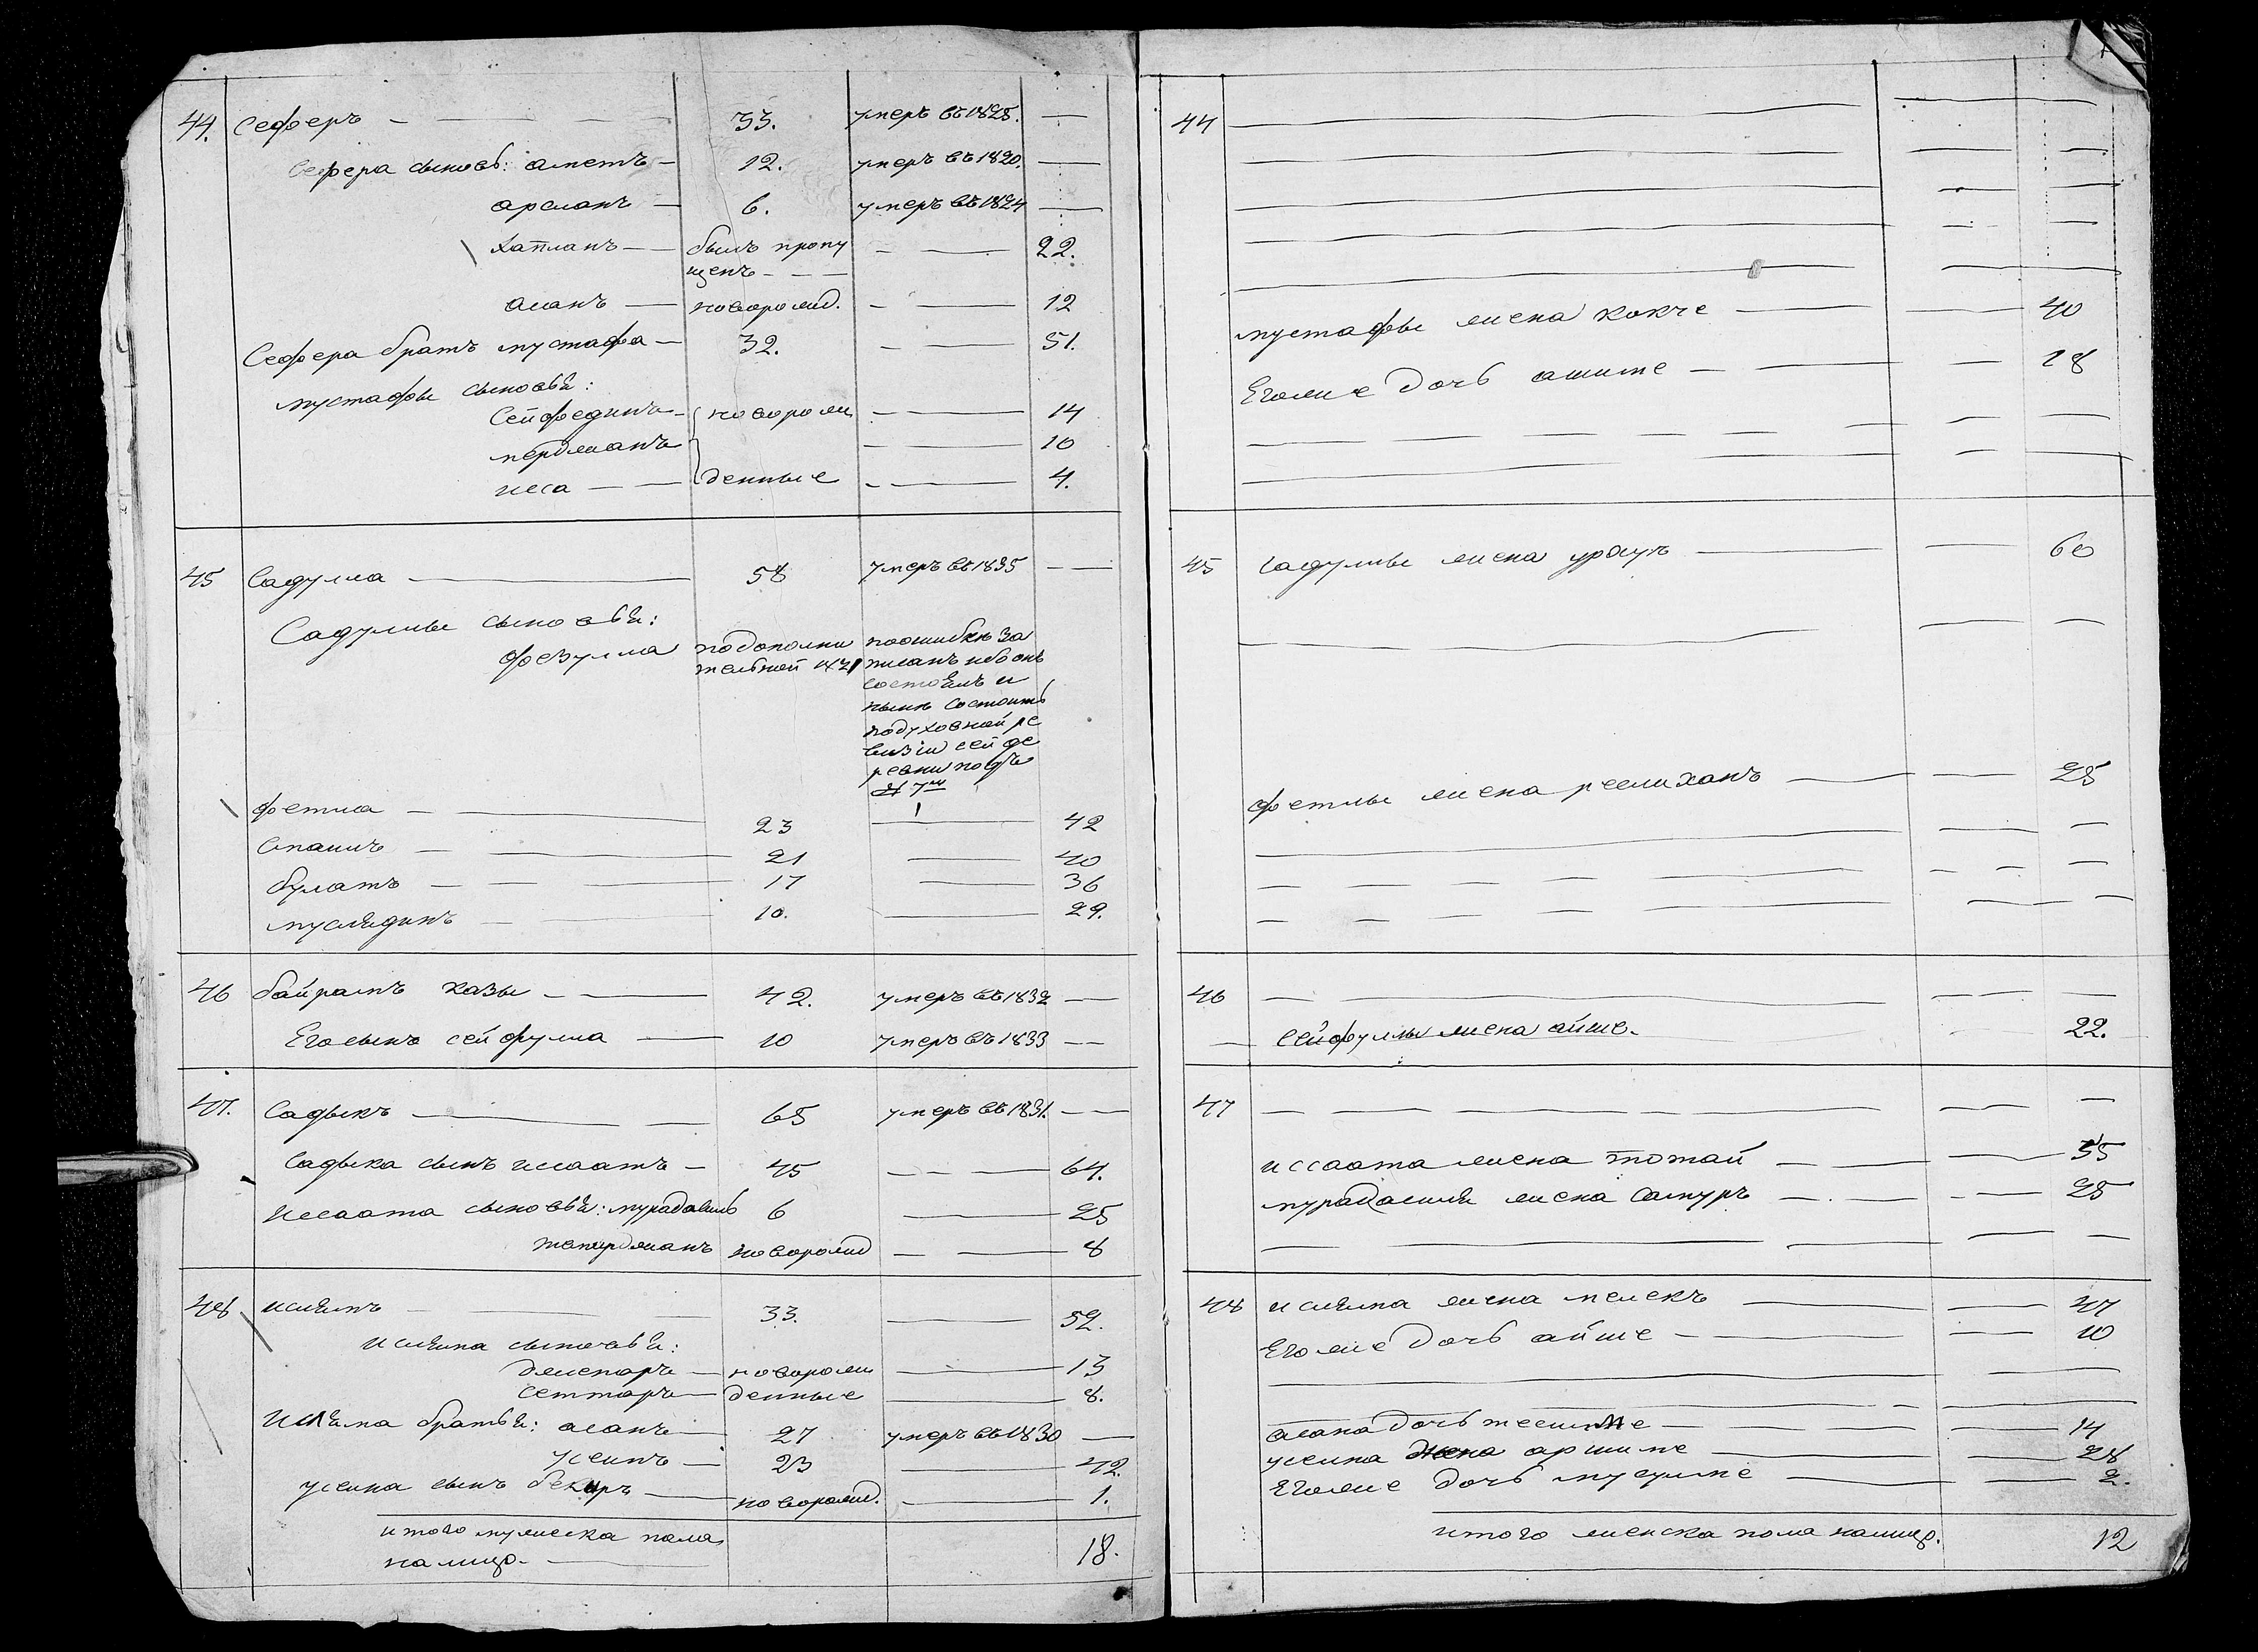 44. Сеферъ — 33. умеръ въ 1828. —
Сефера сыновья: аметъ — 12. умеръ въ 1820. —
арсланъ — 6. умеръ въ 1824 —
Каплан̃ъ — былъ пропу — 22.
щенъ —
асанъ — новорожд. — 12
Сефера братъ мустафа — 32. — 51.
мустафы сыновья:
Сейфединъ — новорож — 14
— 10
иса — денные — 4.
45 Садулла — 58 умеръ въ 1835 —
Садуллы сыновья:
фезулла подополни поошибкѣ за
тельной писанъ ибо онъ
состоялъ и
нынѣ состоитъ
подуховной ре
визiи сей де
ревни подъ
№ 7мъ
фетла — 23 — 42
21 — 40
булатъ — 17 — 36
муслядинъ — 10. — 29.
46 байрамъ казы — 42. умеръ въ 1832 —
Его сынъ сейфулла — 10 умеръ въ 1833 —
47. Садыкъ — 65 умеръ въ 1831. —
Садыка сынъ иссаатъ — 45 — 64.
Иссаата сыновья: мурадаша 6 — 25
новорожд — 8
48 ислямъ — 33. — 52.
ислама сыновья:
дженаръ — новорож — 13
сеттаръ — денные — 8.
Исляма братья: асанъ — 27 умеръ въ 1830 —
усеинъ — 23 — 42.
усеина сынъ бекиръ — новорожд. — 1.
итого мужеска пола
на лицо. — 18.
44 —
мустафы жена кокче — 40
Его же дочь ашиме — 18
45 Садуллы жена урқуъ — 60
фетлы жена — 25
46 —
сейфуллы жена айше. 22.
47 —
иссаата жена тотай — 55
жена — 25
48 исляма жена мелекъ — 47
Его же дочь айше — 10
асана дочь — 14
усеина жена аршиме — 28
Его же дочь муслиме — 2.
итого женска пола на лицо. 12